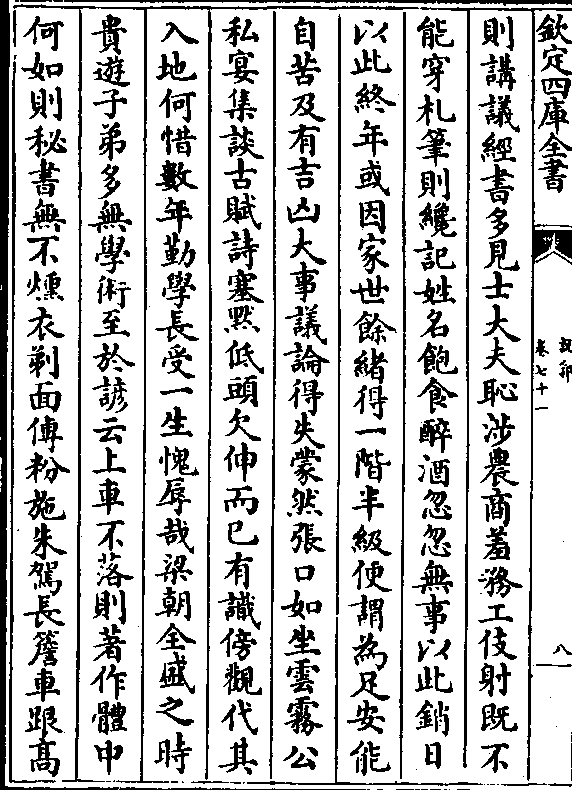 欽定四庫全書
說郛
卷七十一
八
則講議經書多見士大夫恥涉農商羞務工伎射既不
能穿札筆則纔記姓名飽食醉酒忽忽無事以此銷日
以此終年或因家世餘緒得一階半級便謂為足安能
自苦及有吉凶大事議論得失蒙然張口如坐雲霧公
私宴集談古賦詩塞黙低頭欠伸而已有識傍觀代其
入地何惜數年勤學長受一生愧辱哉梁朝全盛之時
貴遊子弟多無學術至於諺云上車不落則著作體中
何如則秘書無不燻衣剃面傅粉施朱駕長簷車跟高